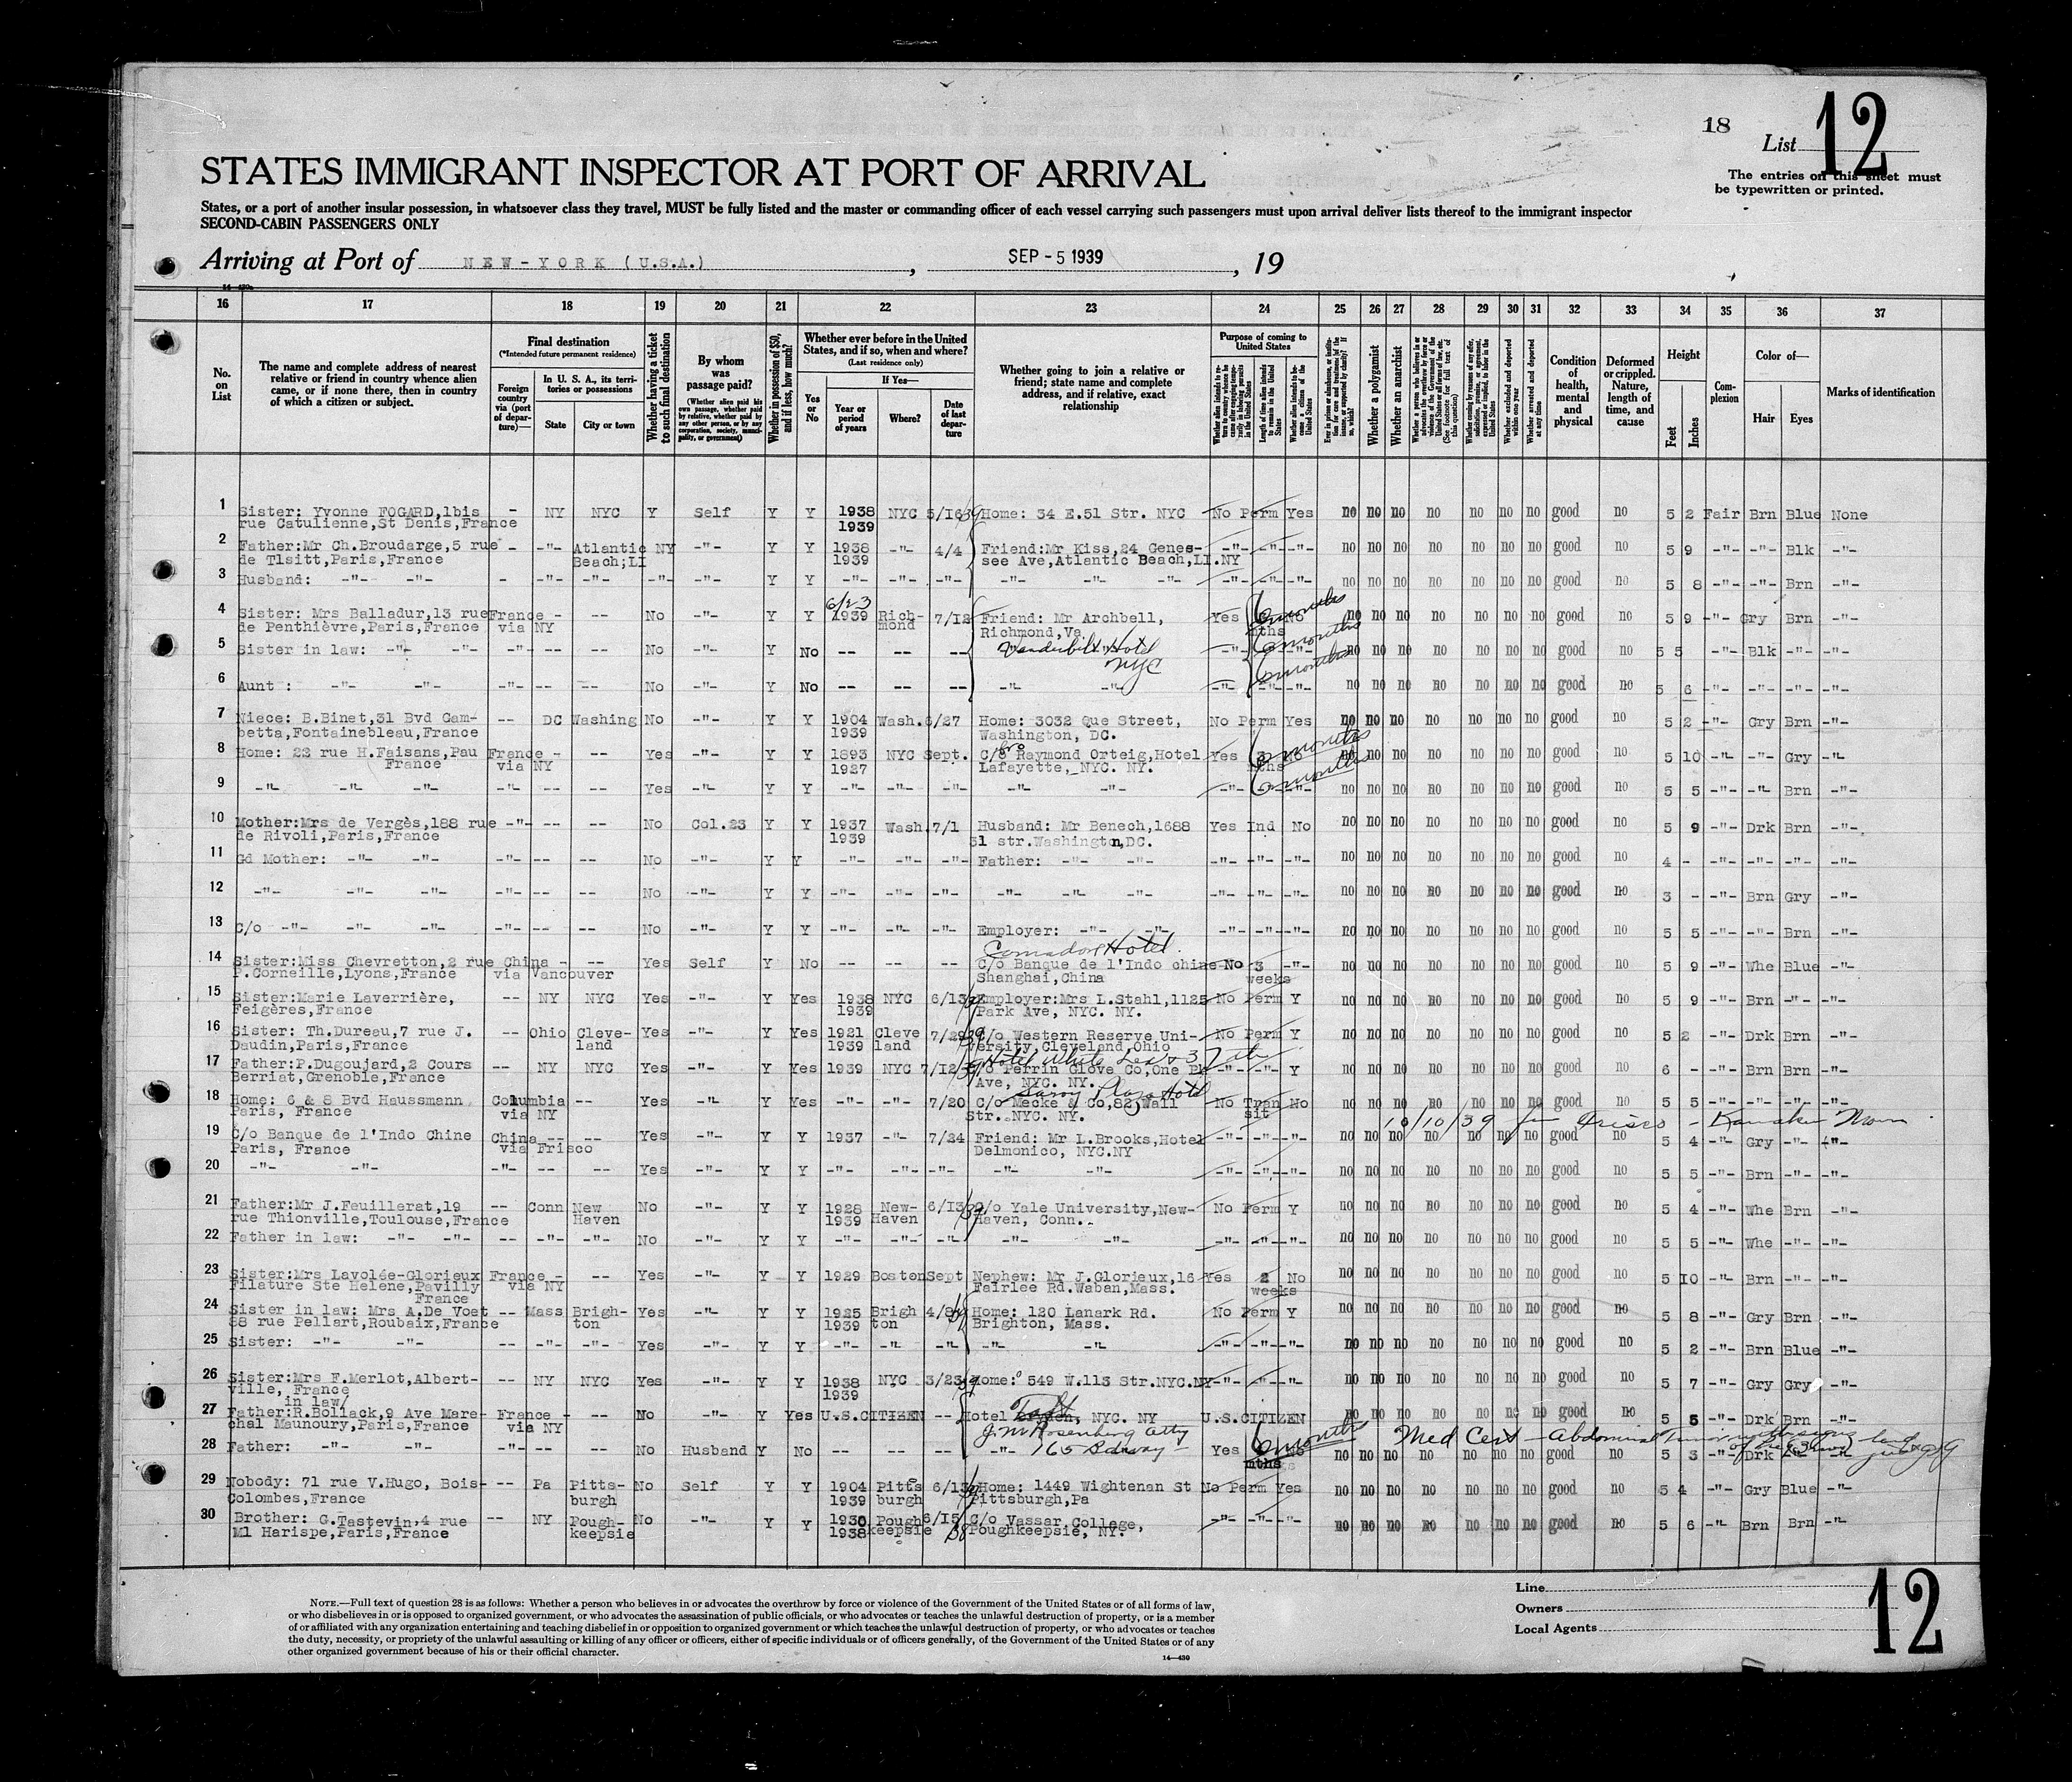 18
List 12
STATES IMMIGRANT INSPECTOR AT PORT OF ARRIVAL
The entries on this sheet must
be typewritten or printed.
States, or a port of another insular possession, in whatsoever class they travel, MUST be fully listed and the master or commanding officer of each vessel carrying such passengers must upon arrival deliver lists thereof to the immigrant inspector
SECOND-CABIN PASSENGERS ONLY
Arriving at Port of NEW-YORK (U.S.A.) , SEP - 5 1939 , 19
16 17 18 19 20 21 22 23 24 25 26 27 28 29 30 31 32 33 34 35 36 37
No. on List
The name and complete address of nearest relative or friend in country whence alien came, or if none there, then in country of which a citizen or subject.
Final destination
(*Intended future permanent residence)
Foreign country via (port of departure)—
In U. S. A., its territories or possessions
State
City or town
Whether having a ticket to such final destination
By whom was passage paid?
(Whether alien paid his own passage, whether paid by relative, whether paid by any other person, or by any corporation, society, municipality, or government)
Whether in possession of $50, and if less, how much?
Whether ever before in the United States, and if so, when and where?
(Last residence only)
Yes or No
If Yes—
Year or period of years
Where?
Date of last departure
Whether going to join a relative or friend; state name and complete address, and if relative, exact relationship
Purpose of coming to United States
Whether a polygamist
Whether an anarchist
Condition of health, mental and physical
Deformed or crippled. Nature, length of time, and cause
Height
Feet
Inches
Complexion
Color of—
Hair
Eyes
Marks of identification
1 Sister: Yvonne FOGARD,1bis - NY NYC Y Self Y Y 1938 NYC 5/16/39 Home: 34 E.51 Str. NYC No Perm Yes no no no no no no no good no 5 2 Fair Brn Blue None
rue Catulienne,St Denis,France 1939
2 Father:Mr Ch.Broudarge,5 rue - -"- Atlantic NY -"- Y Y 1938 -"- 4/4 Friend:Mr Kiss,24 Genes- -"- -"- -"- no no no no no no no good no 5 9 -"- -"- Blk -"-
de Tlsitt,Paris,France Beach;LI 1939 see Ave,Atlantic Beach,LI.NY
3 Husband: -"- -"- - -"- -"- -"- -"- Y Y -"- -"- -"- -"- -"- -"- -"- -"- -"- no no no no no no no good no 5 8 -"- -"- Brn -"-
6/23
4 Sister: Mrs Balladur,13 rue France - -- No -"- Y Y 1939 Rich- 7/12 Friend: Mr Archbell, Yes 6 No 6 months no no no no no no no good no 5 9 -"- Gry Brn -"-
de Penthièvre,Paris,France via NY mond Richmond,Va mths
5 Sister in law: -"- -"- -"- -- -- No -"- Y No -- -- -- Vanderbilt Hotel -"- -"- 6 months no no no no no no no good no 5 5 -"- Blk -"- -"-
NYC
6 Aunt : -"- -"- -"- -- -- No -"- Y No -- -- -- -"- -"- -"- -"- -"- 6 months no no no no no no no good no 5 6 -"- -"- -"- -"-
7 Niece: B.Binet,31 Bvd Gam- -- DC Washing No -"- Y Y 1904 Wash. 6/27 Home: 3032 Que Street, No Perm Yes no no no no no no no good no 5 2 -"- Gry Brn -"-
betta,Fontainebleau,France 1939 Washington, DC.
8 Home: 22 rue H.Faisans,Pau France - -- Yes -"- Y Y 1893 NYC Sept. C/o bro Raymond Orteig,Hotel Yes 3 No 6 months no no no no no no no good no 5 10 -"- -"- Gry -"-
France via NY 1927 Lafayette, NYC. NY. mths
9 -"- -"- -"- -"- -- -- Yes -"- Y Y -"- -"- -"- -"- -"- -"- -"- -"- 6 months no no no no no no no good no 5 5 -"- -"- Brn -"-
10 Mother:Mrs de Vergès,188 rue -"- -- -- No Col.23 Y Y 1937 Wash. 7/1 Husband: Mr Benech,1688 Yes Ind No no no no no no no no good no 5 9 -"- Drk Brn -"-
de Rivoli,Paris,France 1939 31 str.Washington,DC.
11 Gd Mother: -"- -"- -"- -- -- No -"- Y Y -"- -"- -"- Father: -"- -"- -"- -"- -"- no no no no no no no good no 4 - -"- -"- -"- -"-
12 -"- -"- -"- -"- -- -- No -"- Y Y -"- -"- -"- -"- -"- -"- -"- -"- -"- no no no no no no no good no 3 - -"- Brn Gry -"-
13 C/o -"- -"- -"- -"- -- -- No -"- Y Y -"- -"- -"- Employer: -"- -"- -"- -"- -"- no no no no no no no good no 5 5 -"- -"- Brn -"-
Hotel
14 Sister:Miss Chevretton,2 rue China - -- Yes Self Y No -- -- -- C/o Banque de l'Indo chine No 3 -"- no no no no no no no good no 5 9 -"- Whe Blue -"-
P.Corneille,Lyons,France via Vancouver Shanghai,China weeks
15 Sister:Marie Laverrière, -- NY NYC Yes -"- Y Yes 1938 NYC 6/13/39 Employer:Mrs L.Stahl,1125 No Perm Y no no no no no no no good no 5 9 -"- Brn -"- -"-
Feigères,France 1939 Park Ave, NYC. NY.
16 Sister: Th.Dureau,7 rue J. -- Ohio Cleve- Yes -"- Y Yes 1921 Cleve 7/29/39 C/o Western Reserve Uni- No Perm Y no no no no no no no good no 5 2 -"- Drk Brn -"-
Daudin,Paris,France land 1939 land versity,Cleveland,Ohio
17 Father:P.Dugoujard,2 Cours -- NY NYC Yes -"- Y Yes 1939 NYC 7/12/39 C/o Perrin Glove Co,One Pk -"- -"- Y no no no no no no no good no 6 - -"- Brn Brn -"-
Berriat,Grenoble,France Ave, NYC. NY.
Savoy Plaza Hotel
18 Home: 6 & 8 Bvd Haussmann Columbia -- Yes -"- Y Yes -"- -"- 7/20 C/o Mecke & Co,82,Wall No Tran No no no no no no no no good no 5 5 -"- -"- -"- -"-
Paris, France via NY Str. NYC. NY. sit
10/10/39 Frisco - Kamaku Maru
19 C/o Banque de l'Indo Chine China -- -- Yes -"- Y Y 1937 -"- 7/24 Friend: Mr L.Brooks,Hotel -"- -"- -"- no no no no no no no good no 5 4 -"- Gry -"- -"-
Paris, France via Frisco Delmonico, NYC.NY
20 -"- -"- -"- -- -- Yes -"- Y Y -"- -"- -"- -"- -"- -"- -"- -"- no no no no no no no good no 5 5 -"- Brn -"- -"-
21 Father:Mr J.Feuillerat,19 -- Conn New No -"- Y Y 1928 New- 6/13/39 C/o Yale University,New- No Perm Y no no no no no no no good no 5 4 -"- Whe Brn -"-
rue Thionville,Toulouse,France Haven 1939 Haven Haven, Conn.
22 Father in law: -"- -"- -- -"- -"- No -"- Y Y -"- -"- -"- -"- -"- -"- -"- -"- no no no no no no no good no 5 5 -"- Whe -"- -"-
23 Sister:Mrs Lavolée-Glorieux France - -- Yes -"- Y Y 1929 Boston Sept Nephew: Mr J.Glorieux,16 Yes 2 No no no no no no no no good no 5 10 -"- Brn -"- -"-
Filature Ste Helene,Pavilly via NY Fairlee Rd.Waban,Mass. weeks
France
24 Sister in law: Mrs A.De Voet -- Mass Brigh- Yes -"- Y Y 1925 Brigh 4/8/39 Home: 120 Lanark Rd. No Perm Y no no no no no no no good no 5 8 -"- Gry Brn -"-
88 rue Pellart,Roubaix,France ton 1939 ton Brighton, Mass.
25 Sister: -"- -"- -- -"- -"- Yes -"- Y Y -"- -"- -"- -"- -"- -"- -"- -"- no no no no no no no good no 5 2 -"- Brn Blue -"-
26 Sister:Mrs F.Merlot,Albert- -- NY NYC Yes -"- Y Y 1938 NYC 3/23/39 Home: 549 W.113 Str.NYC.NY -"- -"- -"- no no no no no no no good no 5 7 -"- Gry Gry -"-
ville, France 1939
in law/
27 Father:R.Bollack,9 Ave Mare- France - -- No -"- Y Yes U.S.CITIZEN -- Hotel Taft, NYC. NY U.S.CITIZEN no no no no no no no good no 5 5 -"- Drk Brn -"-
chal Maunoury,Paris,France via NY J.N. Rosenberg Atty
28 Father: -"- -"- -"- -- -- No Husband Y No -- -- -- -"- 165 Bdway Yes 6 No 6 months no no no no no no no good no 5 3 -"- Drk -"- -"-
mths
Med Cert - Abdominal
29 Nobody: 71 rue V.Hugo, Bois- -- Pa Pitts- No Self Y Y 1904 Pitts 6/13/39 Home: 1449 Wightenan St No Perm Yes no no no no no no no good no 5 4 -"- Gry Blue -"-
Colombes,France burgh 1939 burgh Pittsburgh,Pa
30 Brother: G.Tastevin,4 rue -- NY Pough- No -"- Y Y 1930 Pough 6/15/38 C/o Vassar College, -"- -"- -"- no no no no no no no good no 5 6 -"- Brn Brn -"-
Ml Harispe,Paris,France keepsie 1938 keepsie Poughkeepsie, NY.
NOTE.—Full text of question 28 is as follows: Whether a person who believes in or advocates the overthrow by force or violence of the Government of the United States or of all forms of law,
or who disbelieves in or is opposed to organized government, or who advocates the assassination of public officials, or who advocates or teaches the unlawful destruction of property, or is a member
of or affiliated with any organization entertaining and teaching disbelief in or opposition to organized government or which teaches the unlawful destruction of property, or who advocates or teaches
the duty, necessity, or propriety of the unlawful assaulting or killing of any officer or officers, either of specific individuals or of officers generally, of the Government of the United States or of any
other organized government because of his or their official character.
14—430
Line
Owners
Local Agents
12